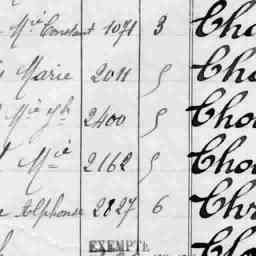 Mie Constant 1071 3 Cho
Marie 2011 5 Cho
Mie Jh 2400 5 Chou
Mie 2162 5 Chou
Alphonse 2827 6 Chr
EXEMPTE